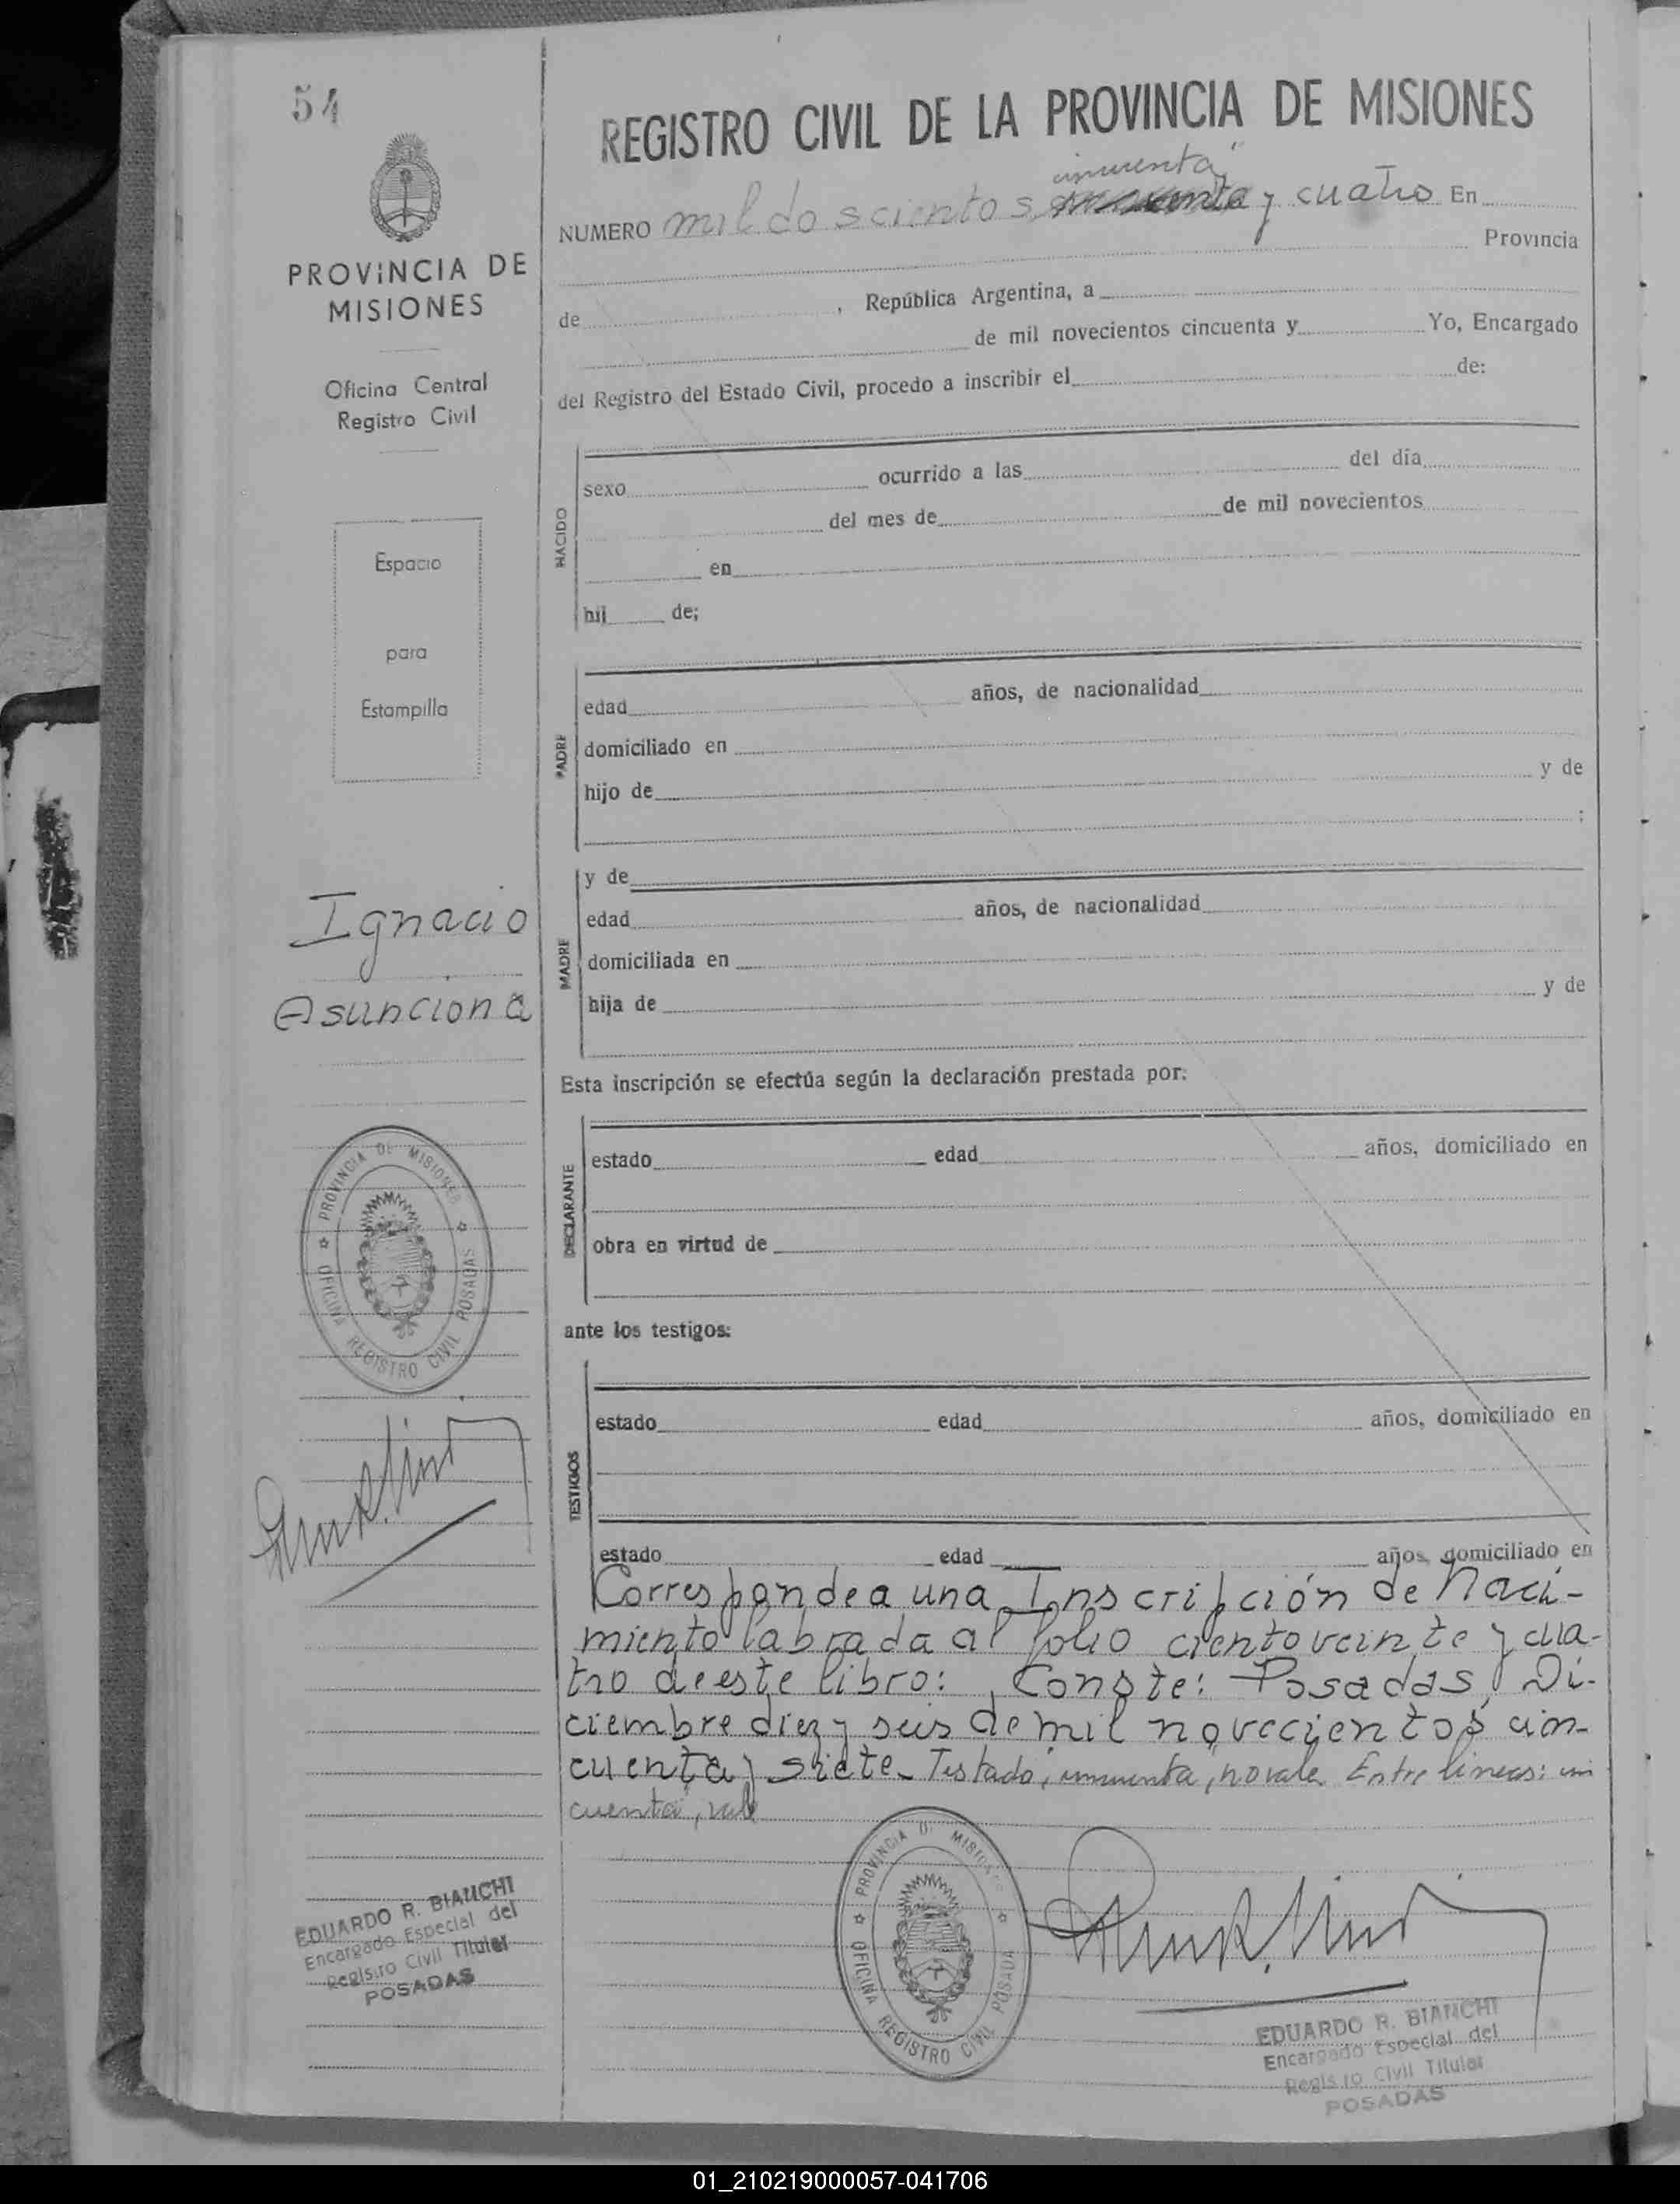 54
PROVINCIA DE
MISIONES
Oficina Central
Registro Civil
Espacio
para
Estampilla
Ignacio
Asunciona
PROVINCIA DE MISIONES
OFICINA REGISTRO CIVIL POSADAS
EDUARDO R. BIANCHI
Encargado Especial del
Registro Civil Titular
POSADAS
REGISTRO CIVIL DE LA PROVINCIA DE MISIONES
NUMERO mil doscientos y cuatro En
Provincia
de , República Argentina, a
de mil novecientos cincuenta y Yo, Encargado
del Registro del Estado Civil, procedo a inscribir el de:
NACIDO
sexo ocurrido a las del día
del mes de de mil novecientos
en
hij de;
PADRE
edad años, de nacionalidad
domiciliado en
hijo de y de
;
MADRE
y de
edad años, de nacionalidad
domiciliada en
hija de y de
Esta inscripción se efectúa según la declaración prestada por:
DECLARANTE
estado edad años, domiciliado en
obra en virtud de
ante los testigos:
TESTIGOS
estado edad años, domiciliado en
estado edad años, domiciliado en
Corresponde a una Inscripción de Naci-
miento labrada al folio ciento veinte y cua-
tro de este libro: Conste: Posadas, Di-
ciembre diez y seis de mil novecientos cin-
cuenta y siete. Testado: no vale. Entre lineas: cin
cuenta, vale
PROVINCIA DE MISIONES
OFICINA REGISTRO CIVIL POSADAS
EDUARDO R. BIANCHI
Encargado Especial del
Registro Civil Titular
POSADAS
01_210219000057-041706